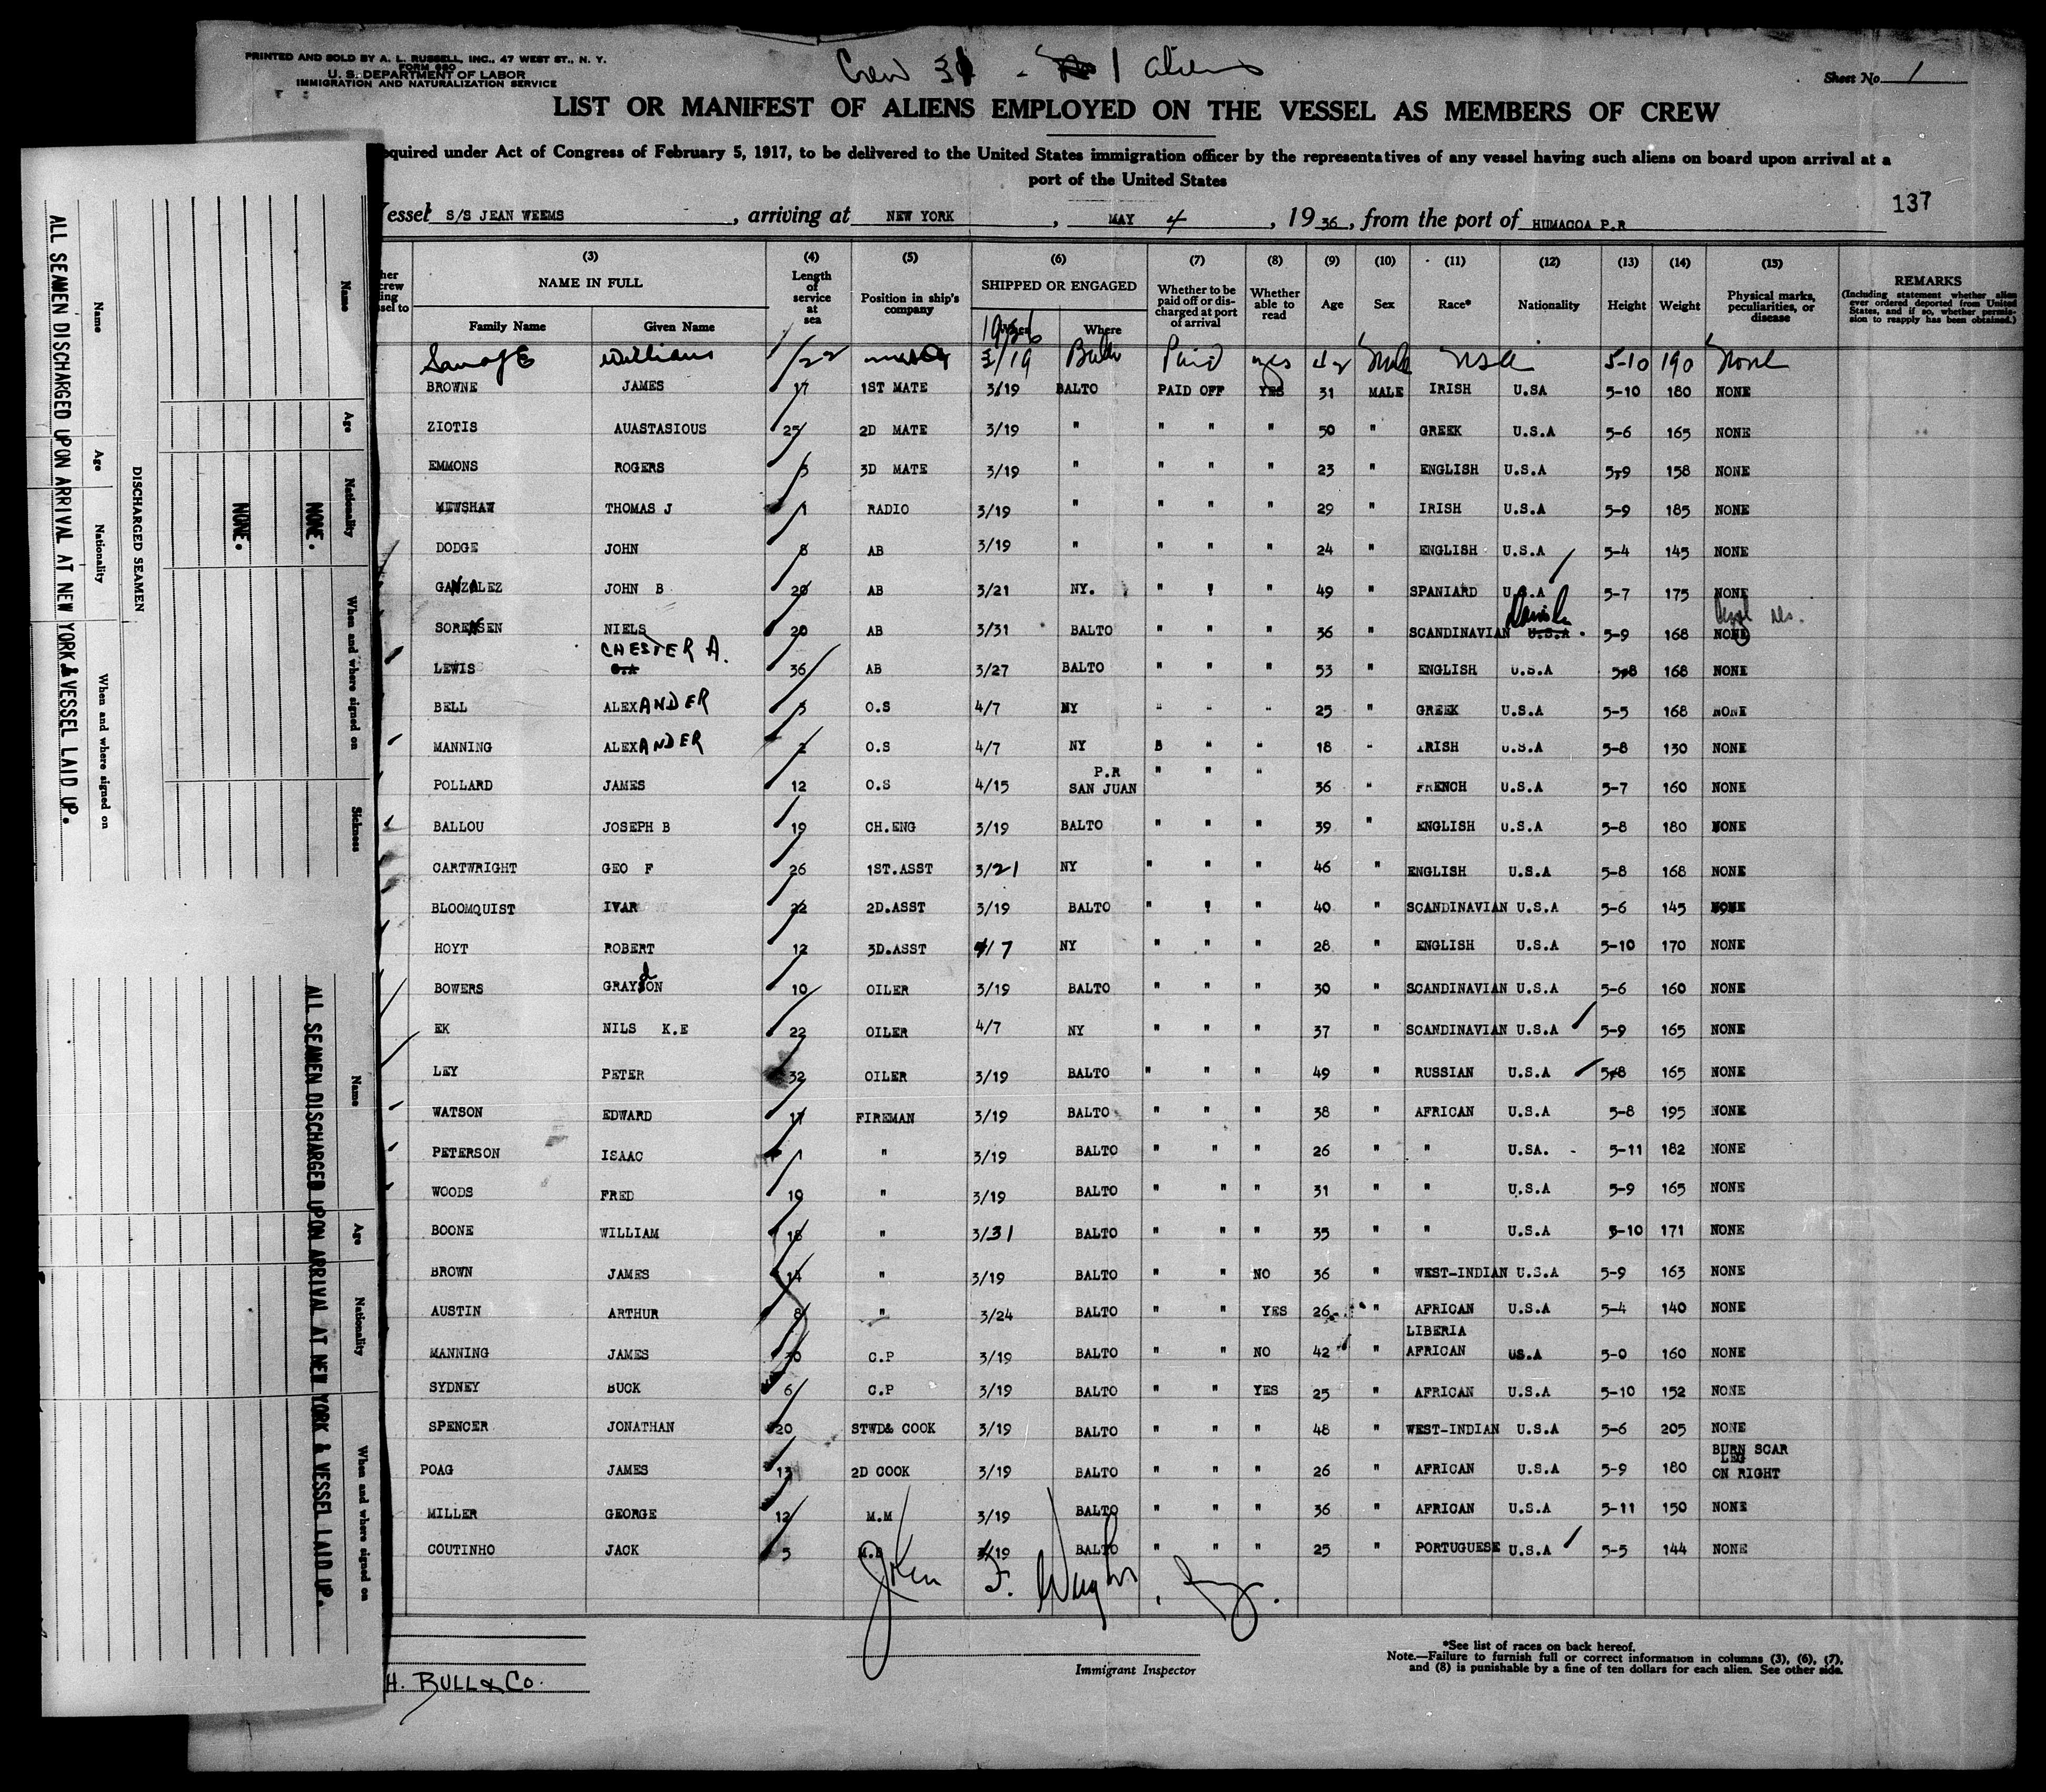 PRINTED AND SOLD BY A. L. RUSSELL, INC., 47 WEST ST., N. Y.
FORM 680
U. S. DEPARTMENT OF LABOR
IMMIGRATION AND NATURALIZATION SERVICE
Crew 31 - 1 aliens
Sheet No. 1
LIST OR MANIFEST OF ALIENS EMPLOYED ON THE VESSEL AS MEMBERS OF CREW
equired under Act of Congress of February 5, 1917, to be delivered to the United States immigration officer by the representatives of any vessel having such aliens on board upon arrival at a
port of the United States
137
Vessel S/S JEAN WEEMS, arriving at NEW YORK, MAY 4, 1936, from the port of HUMACOA P.R
(3) (4) (5) (6) (7) (8) (9) (10) (11) (12) (13) (14) (15)
NAME IN FULL Length of service at sea Position in ship's company SHIPPED OR ENGAGED Whether to be paid off or discharged at port of arrival Whether able to read Age Sex Race* Nationality Height Weight Physical marks, peculiarities, or disease REMARKS
(Including statement whether alien ever ordered deported from United States, and if so, whether permission to reapply has been obtained.)
Family Name Given Name 1936 Where
Savage William 22 3/19 Balto Paid yes 42 Male USA 5-10 190 None
BROWNE JAMES 17 1ST MATE 3/19 BALTO PAID OFF YES 31 MALE IRISH U.SA 5-10 180 NONE
ZIOTIS AUASTASIOUS 25 2D MATE 3/19 " " " " 50 " GREEK U.S.A 5-6 165 NONE
EMMONS ROGERS 3 3D MATE 3/19 " " " " 23 " ENGLISH U.S.A 5-9 158 NONE
MEWSHAW THOMAS J 1 RADIO 3/19 " " " " 29 " IRISH U.S.A 5-9 185 NONE
DODGE JOHN 8 AB 3/19 " " " " 24 " ENGLISH U.S.A 5-4 145 NONE
GANZALEZ JOHN B 20 AB 3/21 NY. " ! " 49 " SPANIARD U.S.A 5-7 175 NONE
SORENSEN NIELS 20 AB 3/31 BALTO " " " 36 " SCANDINAVIAN Danish U.S.A 5-9 168 NONE
LEWIS CHESTER A. 36 AB 3/27 BALTO " " " 53 " ENGLISH U.S.A 5-8 168 NONE
BELL ALEXANDER 3 O.S 4/7 NY " " " 25 " GREEK U.S.A 5-5 168 NONE
MANNING ALEXANDER 2 O.S 4/7 NY B " " 18 " IRISH U.S.A 5-8 130 NONE
POLLARD JAMES 12 O.S 4/15 P.R SAN JUAN " " " 36 " FRENCH U.S.A 5-7 160 NONE
BALLOU JOSEPH B 19 CH.ENG 3/19 BALTO " " " 39 " ENGLISH U.S.A 5-8 180 NONE
CARTWRIGHT GEO F 26 1ST.ASST 3/21 NY " " " 46 " ENGLISH U.S.A 5-8 168 NONE
BLOOMQUIST IVAR 22 2D.ASST 3/19 BALTO " ! " 40 " SCANDINAVIAN U.S.A 5-6 145 NONE
HOYT ROBERT 12 3D.ASST 4/7 NY " " " 28 " ENGLISH U.S.A 5-10 170 NONE
BOWERS GRAYDON 10 OILER 3/19 BALTO " " " 30 " SCANDINAVIAN U.S.A 5-6 160 NONE
EK NILS K.E 22 OILER 4/7 NY " " " 37 " SCANDINAVIAN U.S.A 5-9 165 NONE
LEY PETER 32 OILER 3/19 BALTO " " " 49 " RUSSIAN U.S.A 5-8 165 NONE
WATSON EDWARD 17 FIREMAN 3/19 BALTO " " " 38 " AFRICAN U.S.A 5-8 195 NONE
PETERSON ISAAC 1 " 3/19 BALTO " " " 26 " " U.SA. - 5-11 182 NONE
WOODS FRED 19 " 3/19 BALTO " " " 31 " " U.S.A 5-9 165 NONE
BOONE WILLIAM 18 " 3/31 BALTO " " " 35 " " U.S.A 5-10 171 NONE
BROWN JAMES 14 " 3/19 BALTO " " NO 36 " WEST-INDIAN U.S.A 5-9 163 NONE
AUSTIN ARTHUR 8 " 3/24 BALTO " " YES 26 " AFRICAN U.S.A 5-4 140 NONE
MANNING JAMES 30 C.P 3/19 BALTO " " NO 42 " LIBERIA AFRICAN US.A 5-0 160 NONE
SYDNEY BUCK 6 C.P 3/19 BALTO " " YES 25 " AFRICAN U.S.A 5-10 152 NONE
SPENCER JONATHAN 20 STWD& COOK 3/19 BALTO " " " 48 " WEST-INDIAN U.S.A 5-6 205 NONE
POAG JAMES 13 2D COOK 3/19 BALTO " " " 26 " AFRICAN U.S.A 5-9 180 BURN SCAR LEG ON RIGHT
MILLER GEORGE 12 M.M 3/19 BALTO " " " 36 " AFRICAN U.S.A 5-11 150 NONE
COUTINHO JACK 5 3/19 BALTO " " " 25 " PORTUGUESE U.S.A 5-5 144 NONE
John F.
Immigrant Inspector
*See list of races on back hereof.
Note.—Failure to furnish full or correct information in columns (3), (6), (7),
and (8) is punishable by a fine of ten dollars for each alien. See other side.
H. BULL & CO.
ALL SEAMEN DISCHARGED UPON ARRIVAL AT NEW YORK & VESSEL LAID UP.
Name Age Nationality When and where signed on
DISCHARGED SEAMEN
NONE.
NONE.
Name Age Nationality When and where signed on Sickness
ALL SEAMEN DISCHARGED UPON ARRIVAL AT NEW YORK & VESSEL LAID UP.
Name Age Nationality When and where signed on